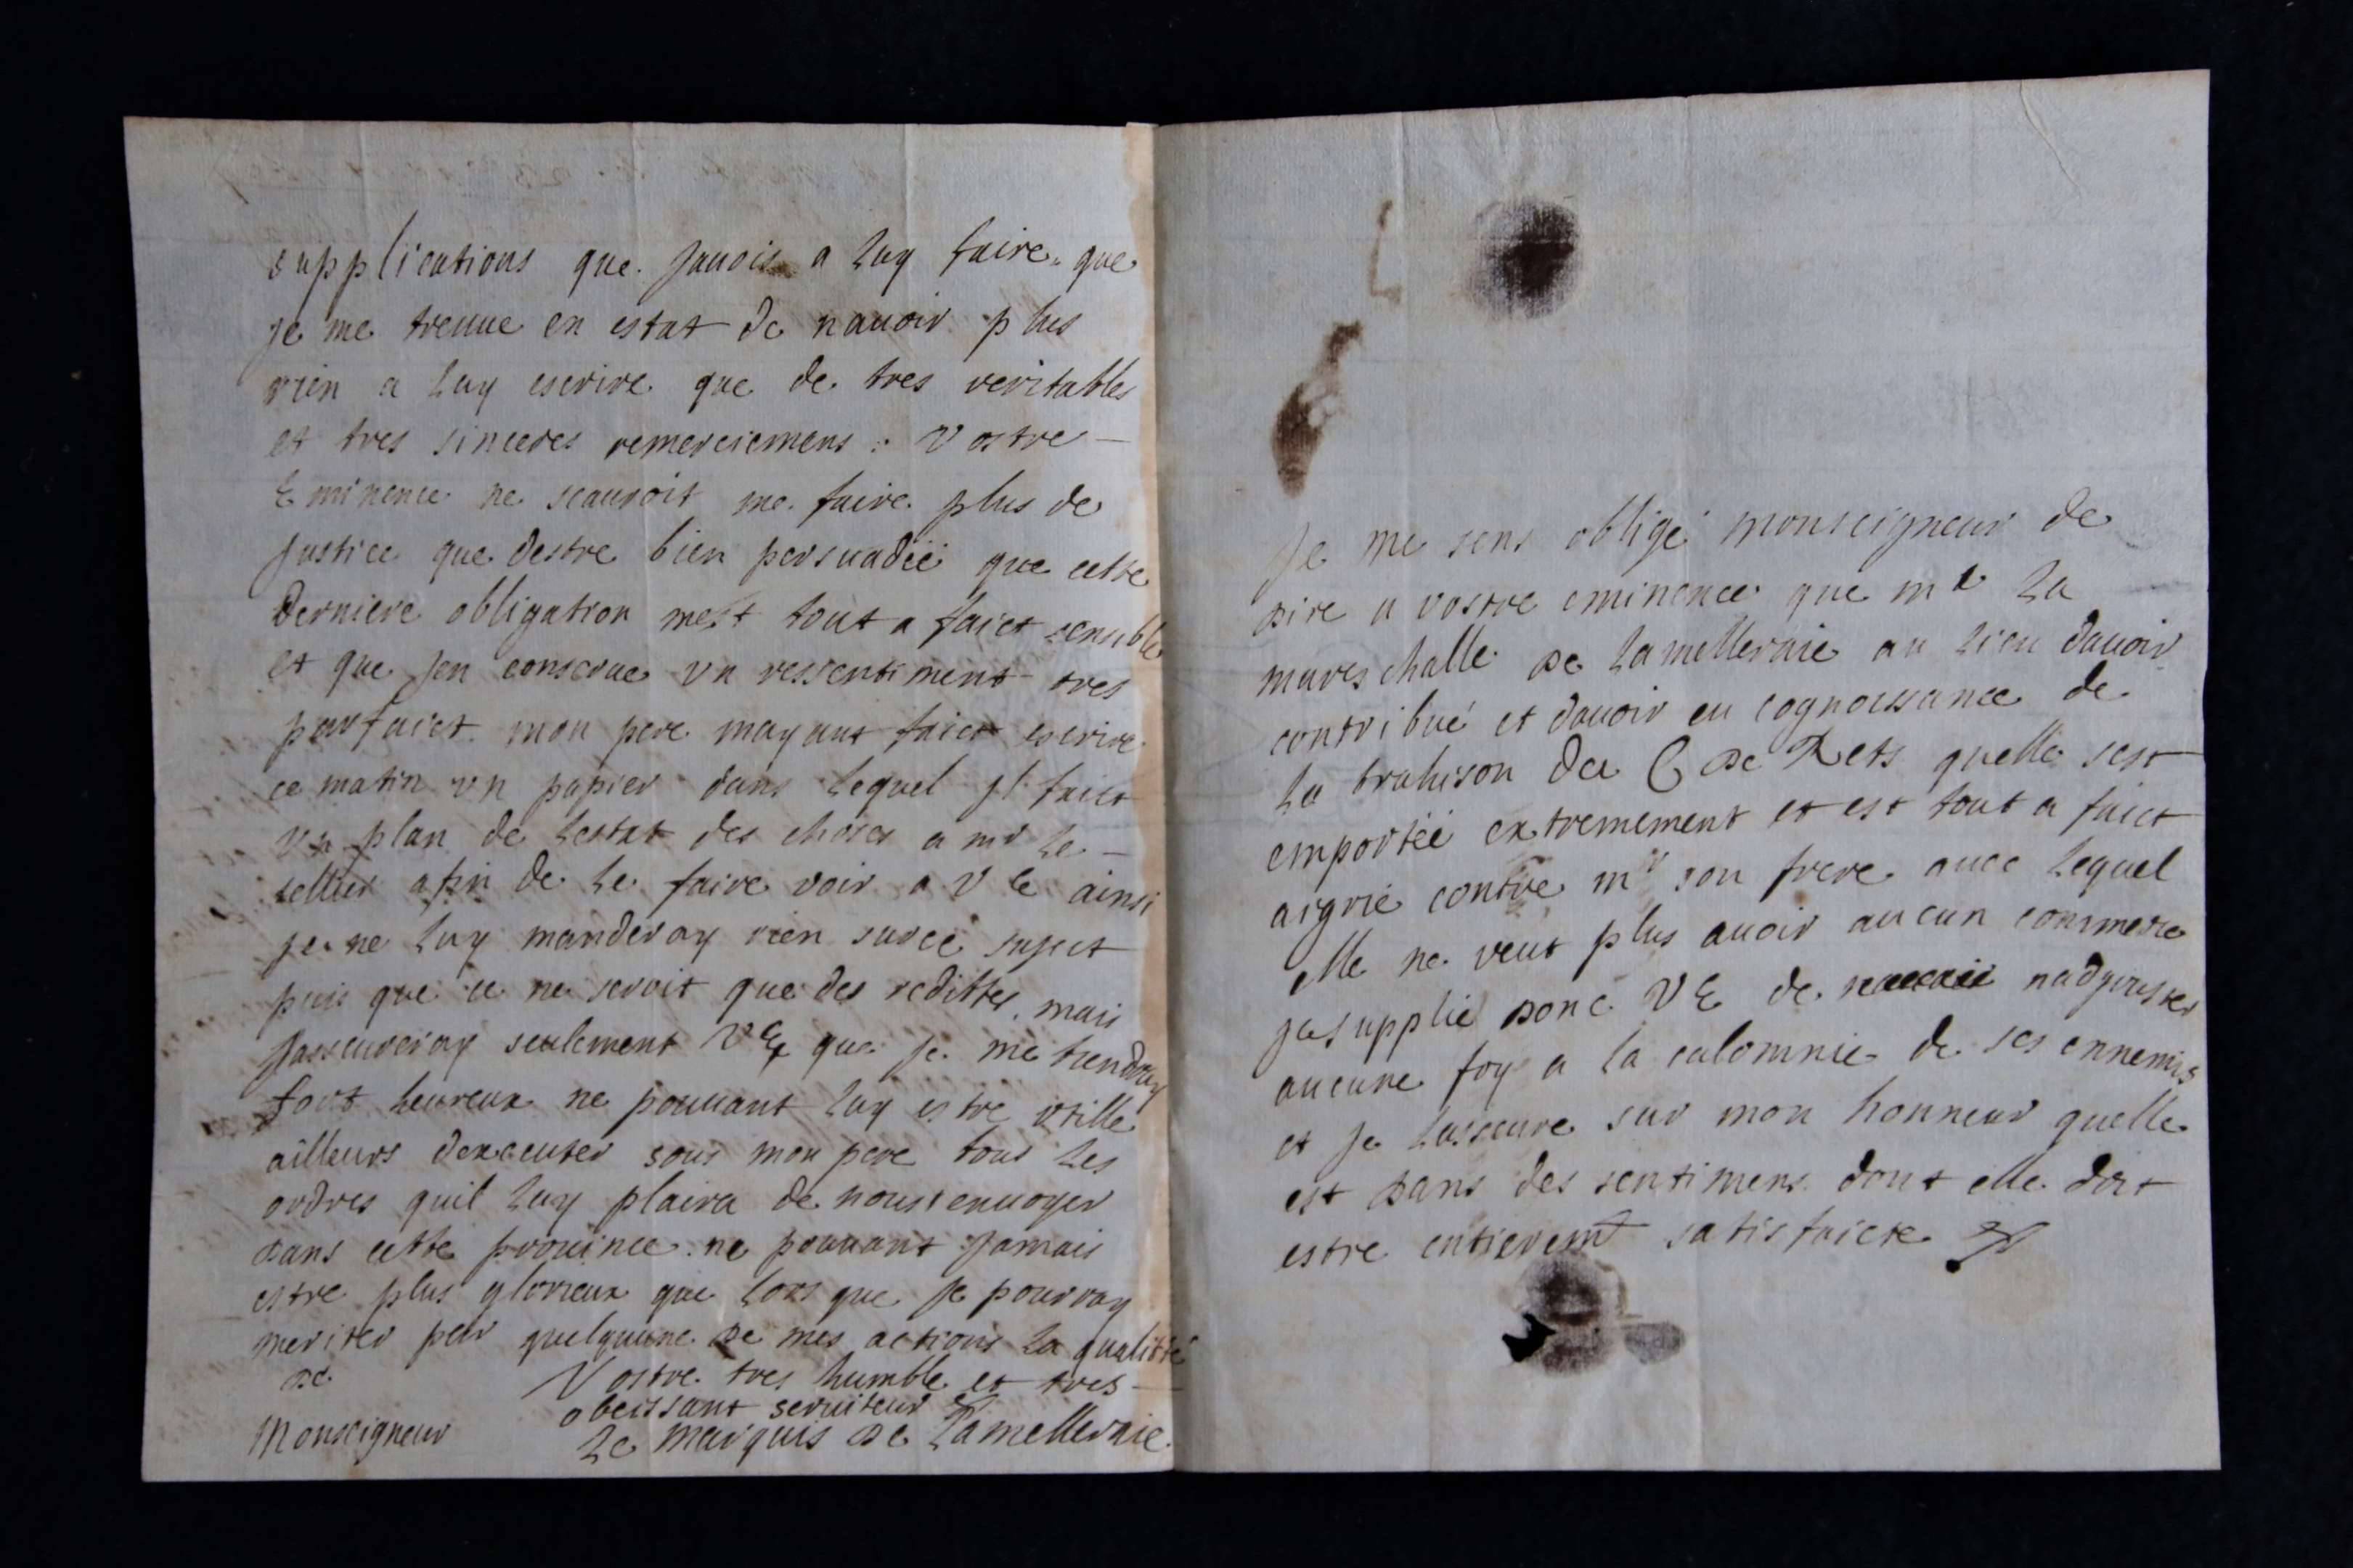 supplications que Jauois a luy faire que
je me treuue en estat de nauoir plus
rien a luy escrire que de tres veritables
et tres sinceres remerciemens : Vostre
Eminence ne scauroit me faire plus de
Justice que destre bien persuadéé que cette
derniere obligation mest tout a faict sensible
et que Jen conserue vn ressentiment tres
parfaict mon pere mayant faict escrire
ce matin vn papier dans lequel Jl faict
vn plan de lestat des choses a mr le
tellier afin de le faire voir a V E ainsi
Je ne luy manderay rien sur ce suject
puis que ce ne seroit que des redittes, mais
Jasseureray seulement V E que Je me tiendray
fort heureux ne pouuant luy estre vtille
ailleurs dexecuter sous mon pere tous les
ordres quil luy plaira de nous enuoyer
dans cette prouince ne pouuant Jamais
estre plus glorieux que lors que Je pourray
meriter par quelquune de mes actions la qualitté
de Vostre tres humble et tres
obeissant seruiteur
Monseigneur Le marquis de Lamelleraie
Je me sens obligé monseigneur de
dire a vostre eminence que me la
mareschalle de Lamelleraie au lieu dauoir
contribué et dauoir eu cognoissance de
la trahison du C de Rets quelle sest
emportéé extremement et est tout a faict
aigrie contre mr son frere auec lequel
elle ne veut plus auoir aucun commerce
Je supplie donc V E de nadjouster
aucune foy a la calomnie de ses ennemis
et Je lasseure sur mon honneur quelle
est dans des sentimens dont elle doit
estre entieremt satisfaicte